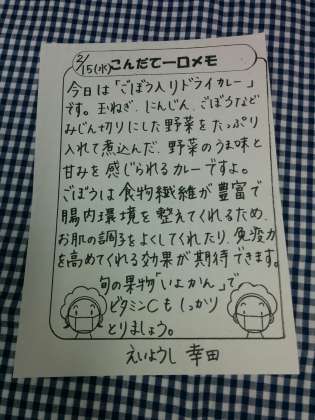 2/15(水) こんだて一口メモ
今日は「ごぼう入りドライカレー」
です。玉ねぎ、にんじん、ごぼうなど
みじん切りにした野菜をたっぷり
入れて煮込んだ、野菜のうま味と
甘みを感じられるカレーですよ。
ごぼうは食物繊維が豊富で
腸内環境を整えてくれるため、
お肌の調子をよくしてくれたり、免疫力
を高めてくれる効果が期待できます。
旬の果物「いよかん」で
ビタミンCもしっかり
とりましょう。
えいようし 幸田